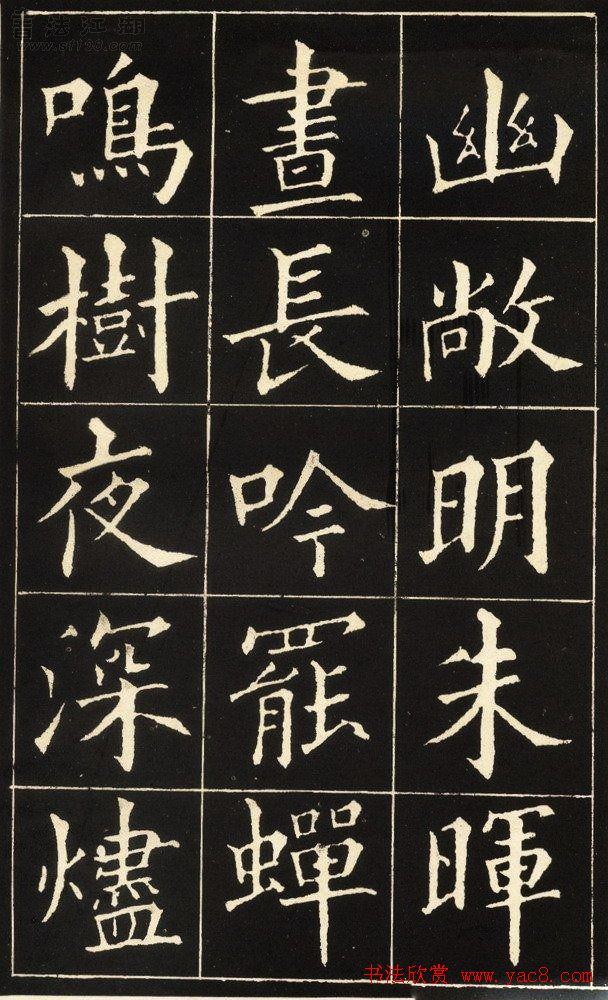 幽敞明朱暉
晝長吟罷蟬
鳴樹夜深燼
书法欣赏 www.yac8.com